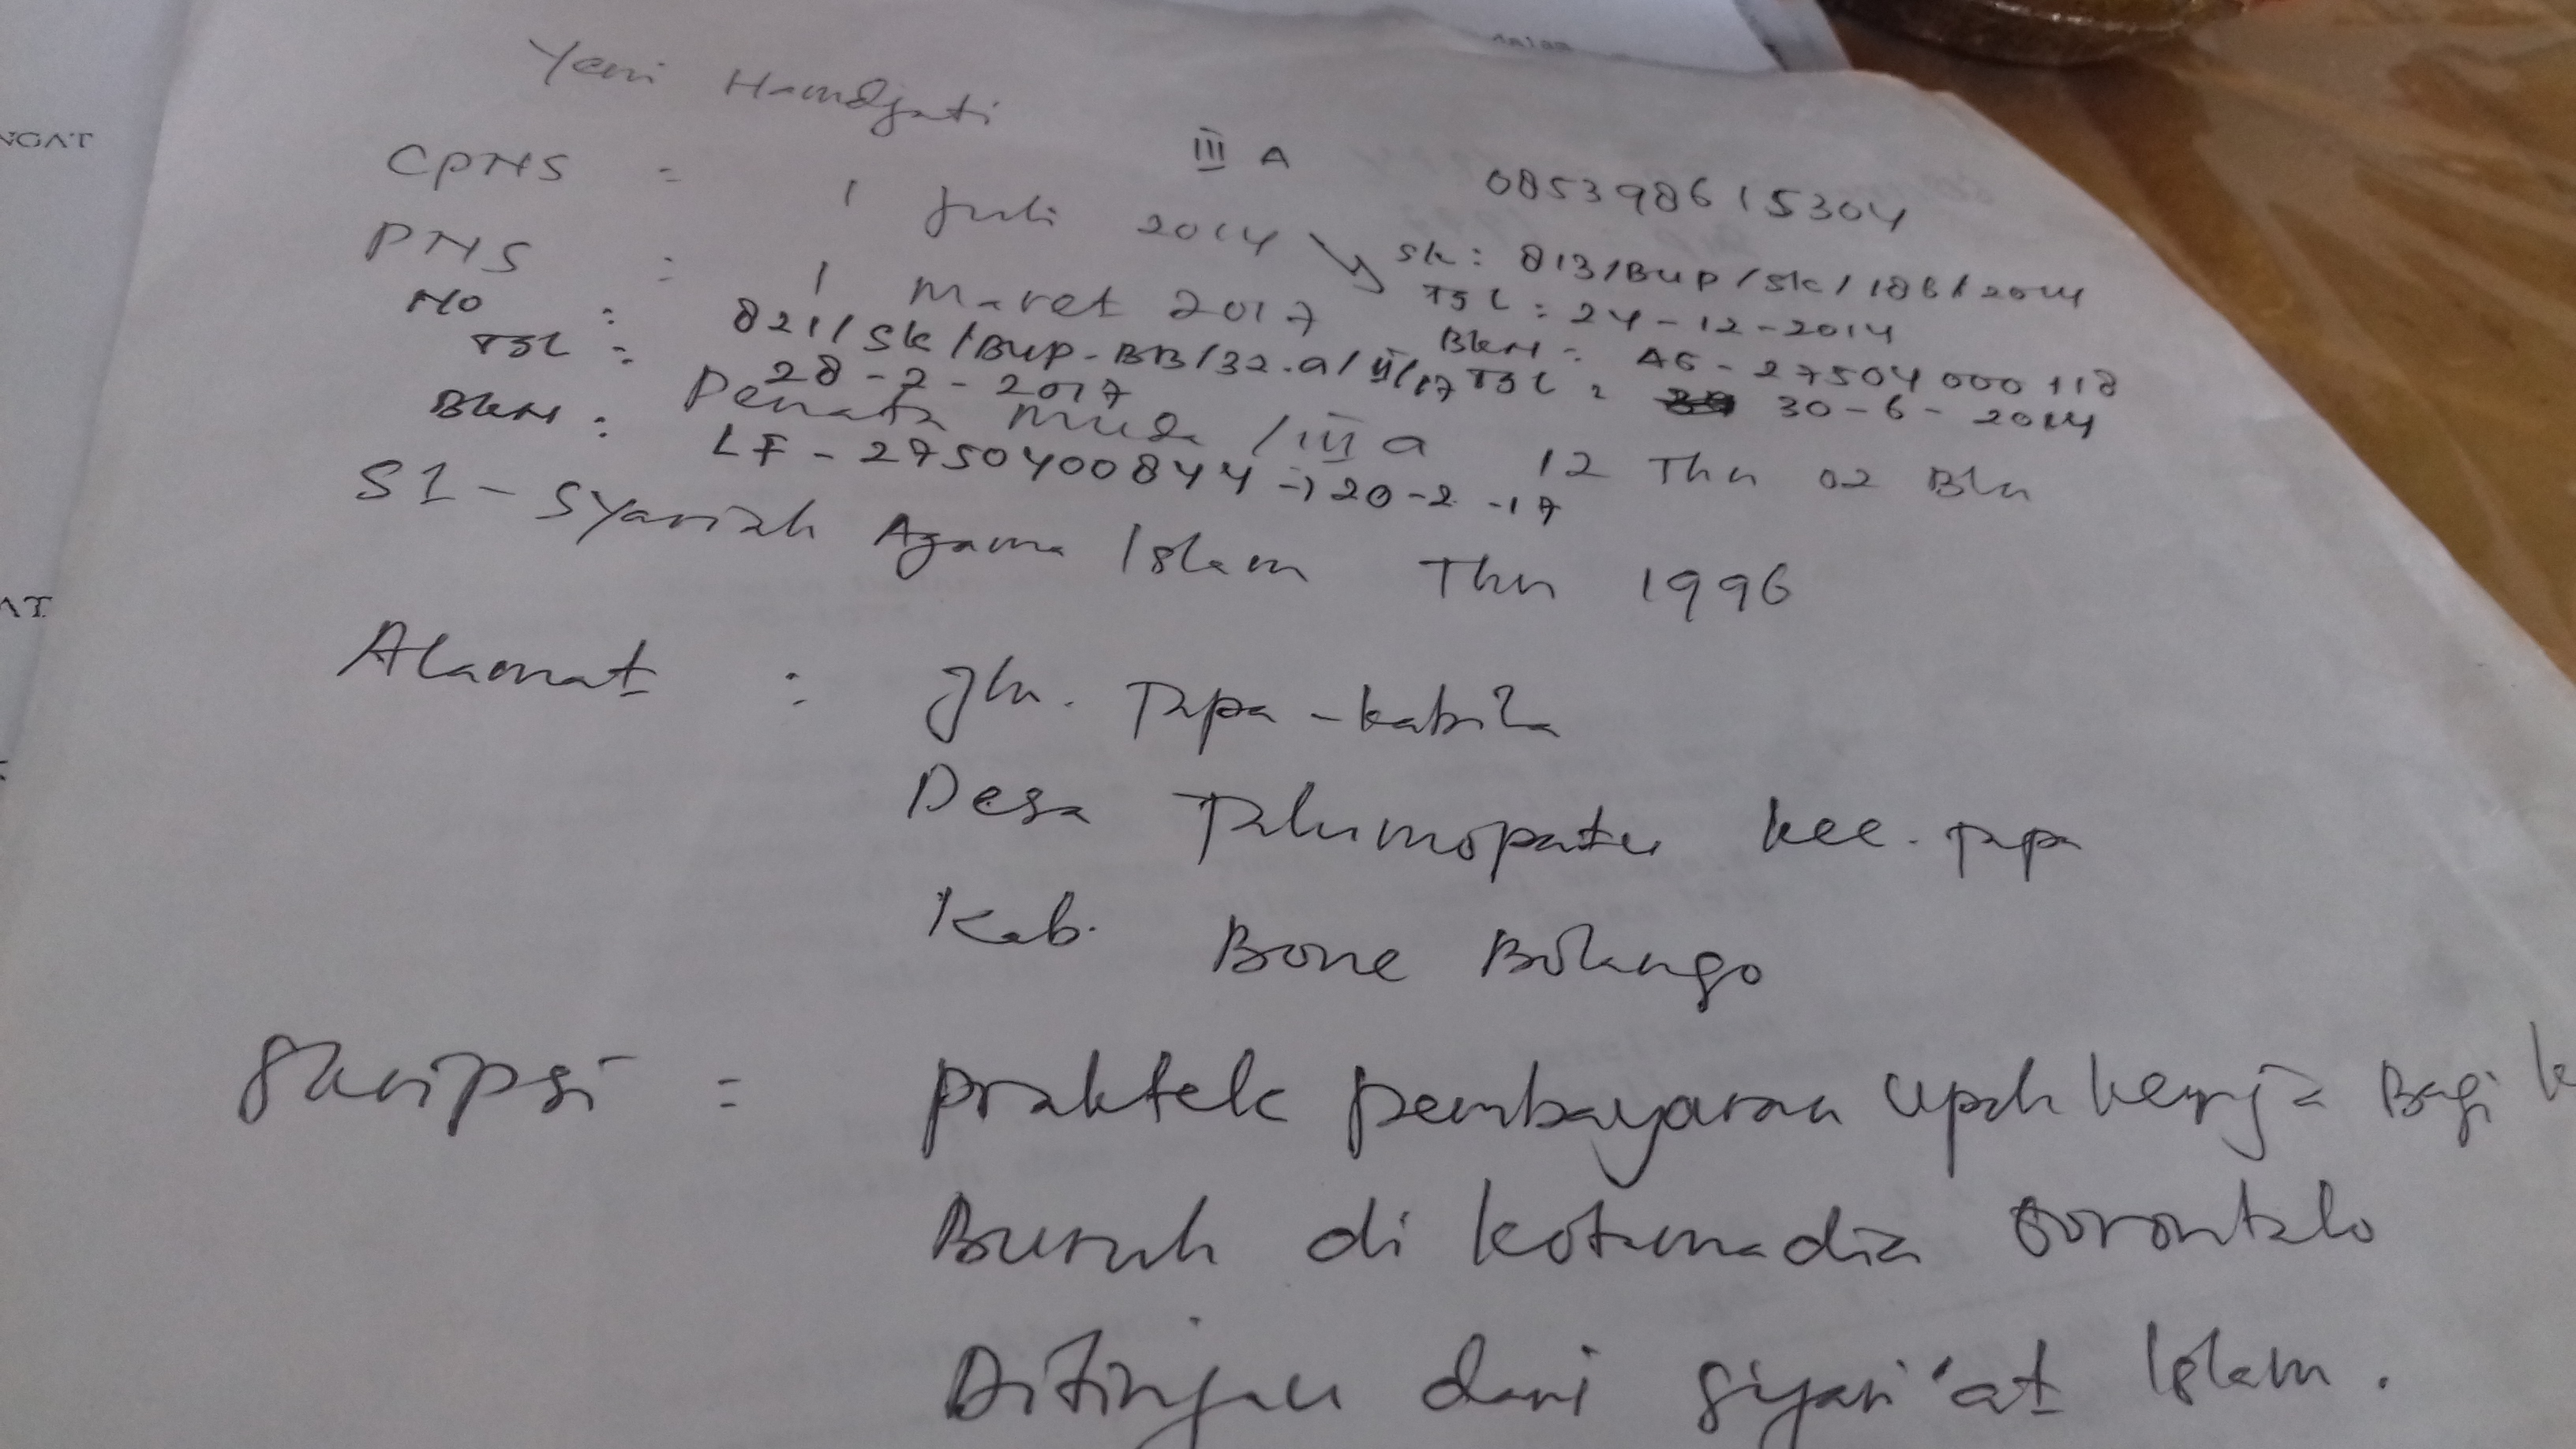 Yeni Hamdjati
III A
085398615304
CPNS = 1 Juli 2014
Sk: 813/Bup/Sk/186/2014
PNS : 1 Maret 2017
Tgl : 24-12-2014
No : 821/Sk/Bup-BB/32.a/II/17
BKN = AG-27504000118
Tgl : 28-2-2017
Tgl : 30-6-2014
Penata Muda /III a
12 Thn 02 Bln
BKN : LF-2750400844 => 20-2-17
S1-Syariah Agama Islam Thn 1996
Alamat : Jln. Tapa-kabila
Desa Talumopatu kec. Tapa
Kab. Bone Bolango
Skripsi = praktek pembayaran upah kerja Bagi
Buruh di kotamadia Gorontalo
Ditinjau dari siyari'at Islam.
NGAT
AT